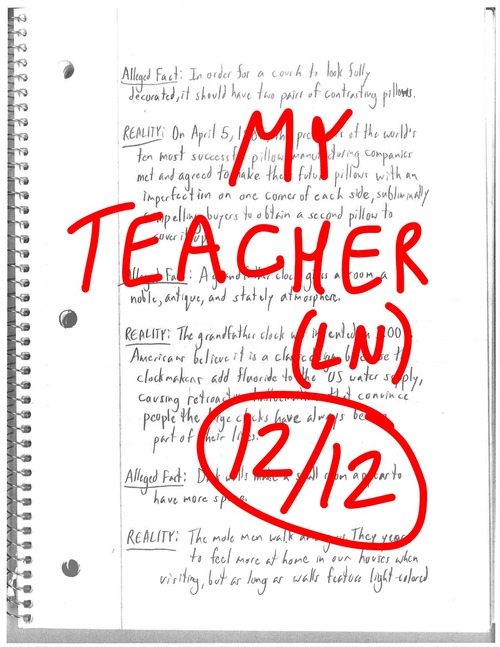 Alleged Fact: In order for a couch to look fully
decorated, it should have two pairs of contrasting pillows.
MY
REALITY: On April 5, the of the world's
ten most successful pillow manufacturing companies
met and agreed to make their future pillows with an
imperfection on one corner of each side, subliminally
compelling buyers to obtain a second pillow to
cover it up.
TEACHER
Alleged Fact: A grandfather clock gives a room a
noble, antique, and stately atmosphere.
(LN)
REALITY: The grandfather clock was invented in
Americans believe it is a classic because the
clockmakers add fluoride to the US water supply,
causing that convince
people the large clocks have always been
part of their lives.
12/12
Alleged Fact: Dark walls make a small room appear to
have more space.
REALITY: The mole men walk among us. They yearn
to feel more at home in our houses when
visiting, but as long as walls feature light-colored